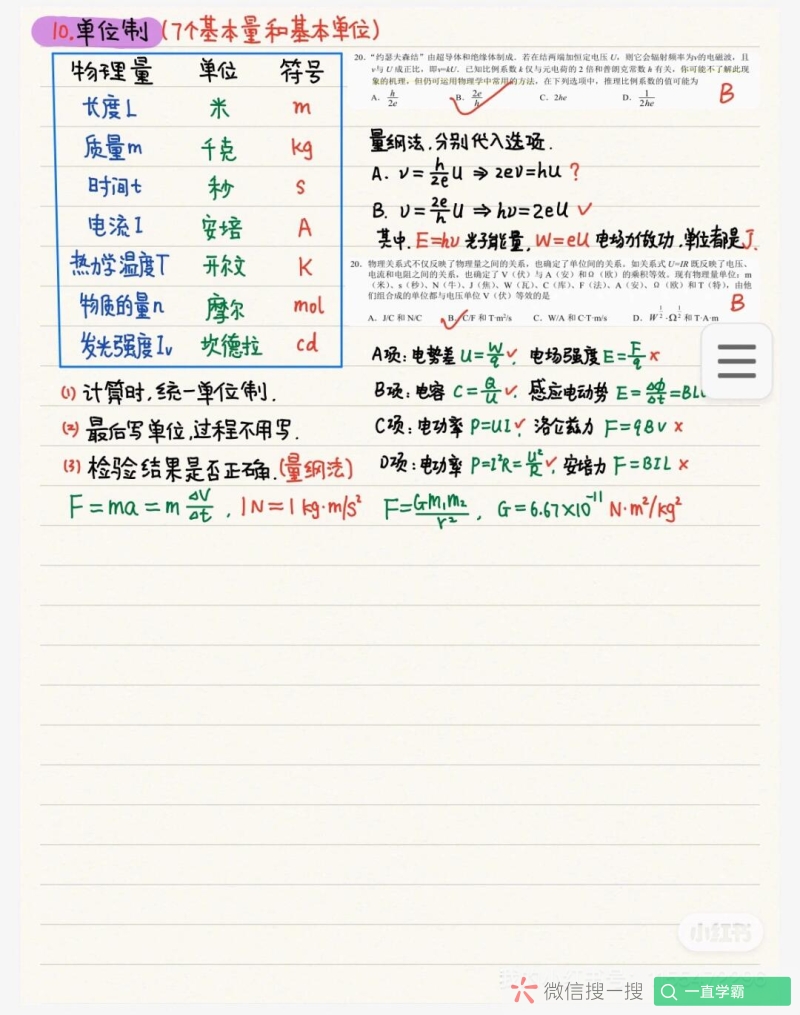 10.单位制(7个基本量和基本单位)
物理量 单位 符号
长度L 米 m
质量m 千克 kg
时间t 秒 s
电流I 安培 A
热力学温度T 开尔文 K
物质的量n 摩尔 mol
发光强度Iv 坎德拉 cd
(1) 计算时,统一单位制.
(2) 最后写单位,过程不用写.
(3) 检验结果是否正确.(量纲法)
F=ma=m ΔV/Δt , 1N=1kg·m/s²
20. “约瑟夫森结”由超导体和绝缘体制成。若在结两端加恒定电压 U，则它会辐射频率为ν的电磁波，且
ν与 U 成正比，即ν=kU。已知比例系数 k 仅与元电荷的 2 倍和普朗克常数 h 有关。你可能不了解此现
象的机理，但仍可运用物理学中常用的方法，在下列选项中，推理比例系数的值可能为
A. h/2e B. 2e/h C. 2he D. 1/2he
B
量纲法,分别代入选项.
A. ν=h/2e U ⇒ 2eν=hU ?
B. ν=2e/h U ⇒ hν=2eU ✓
其中,E=hν 光子能量,W=eU 电场力做功,单位都是J.
20. 物理关系式不仅反映了物理量之间的关系，也确定了单位间的关系。如关系式 U=IR 既反映了电压、
电流和电阻之间的关系，也确定了 V（伏）与 A（安）和Ω（欧）的乘积等效。现有物理量单位：m
（米）、s（秒）、N（牛）、J（焦）、W（瓦）、C（库）、F（法）、A（安）、Ω（欧）和 T（特），由他
们组合成的单位都与电压单位 V（伏）等效的是
A. J/C 和 N/C B. C/F 和 T·m²/s C. W/A 和 C·T·m/s D. W^1/2·Ω^1/2 和 T·A·m
B
A项:电势差 U=W/q ✓. 电场强度 E=F/q ×
B项:电容 C=Q/U ✓. 感应电动势 E=ΔΦ/Δt=BL
C项:电功率 P=UI ✓. 洛仑兹力 F=qBV ×
D项:电功率 P=I²R=U²/R ✓. 安培力 F=BIL ×
F=Gm₁m₂/r² , G=6.67×10⁻¹¹ N·m²/kg²
小红书
微信搜一搜 一直学霸